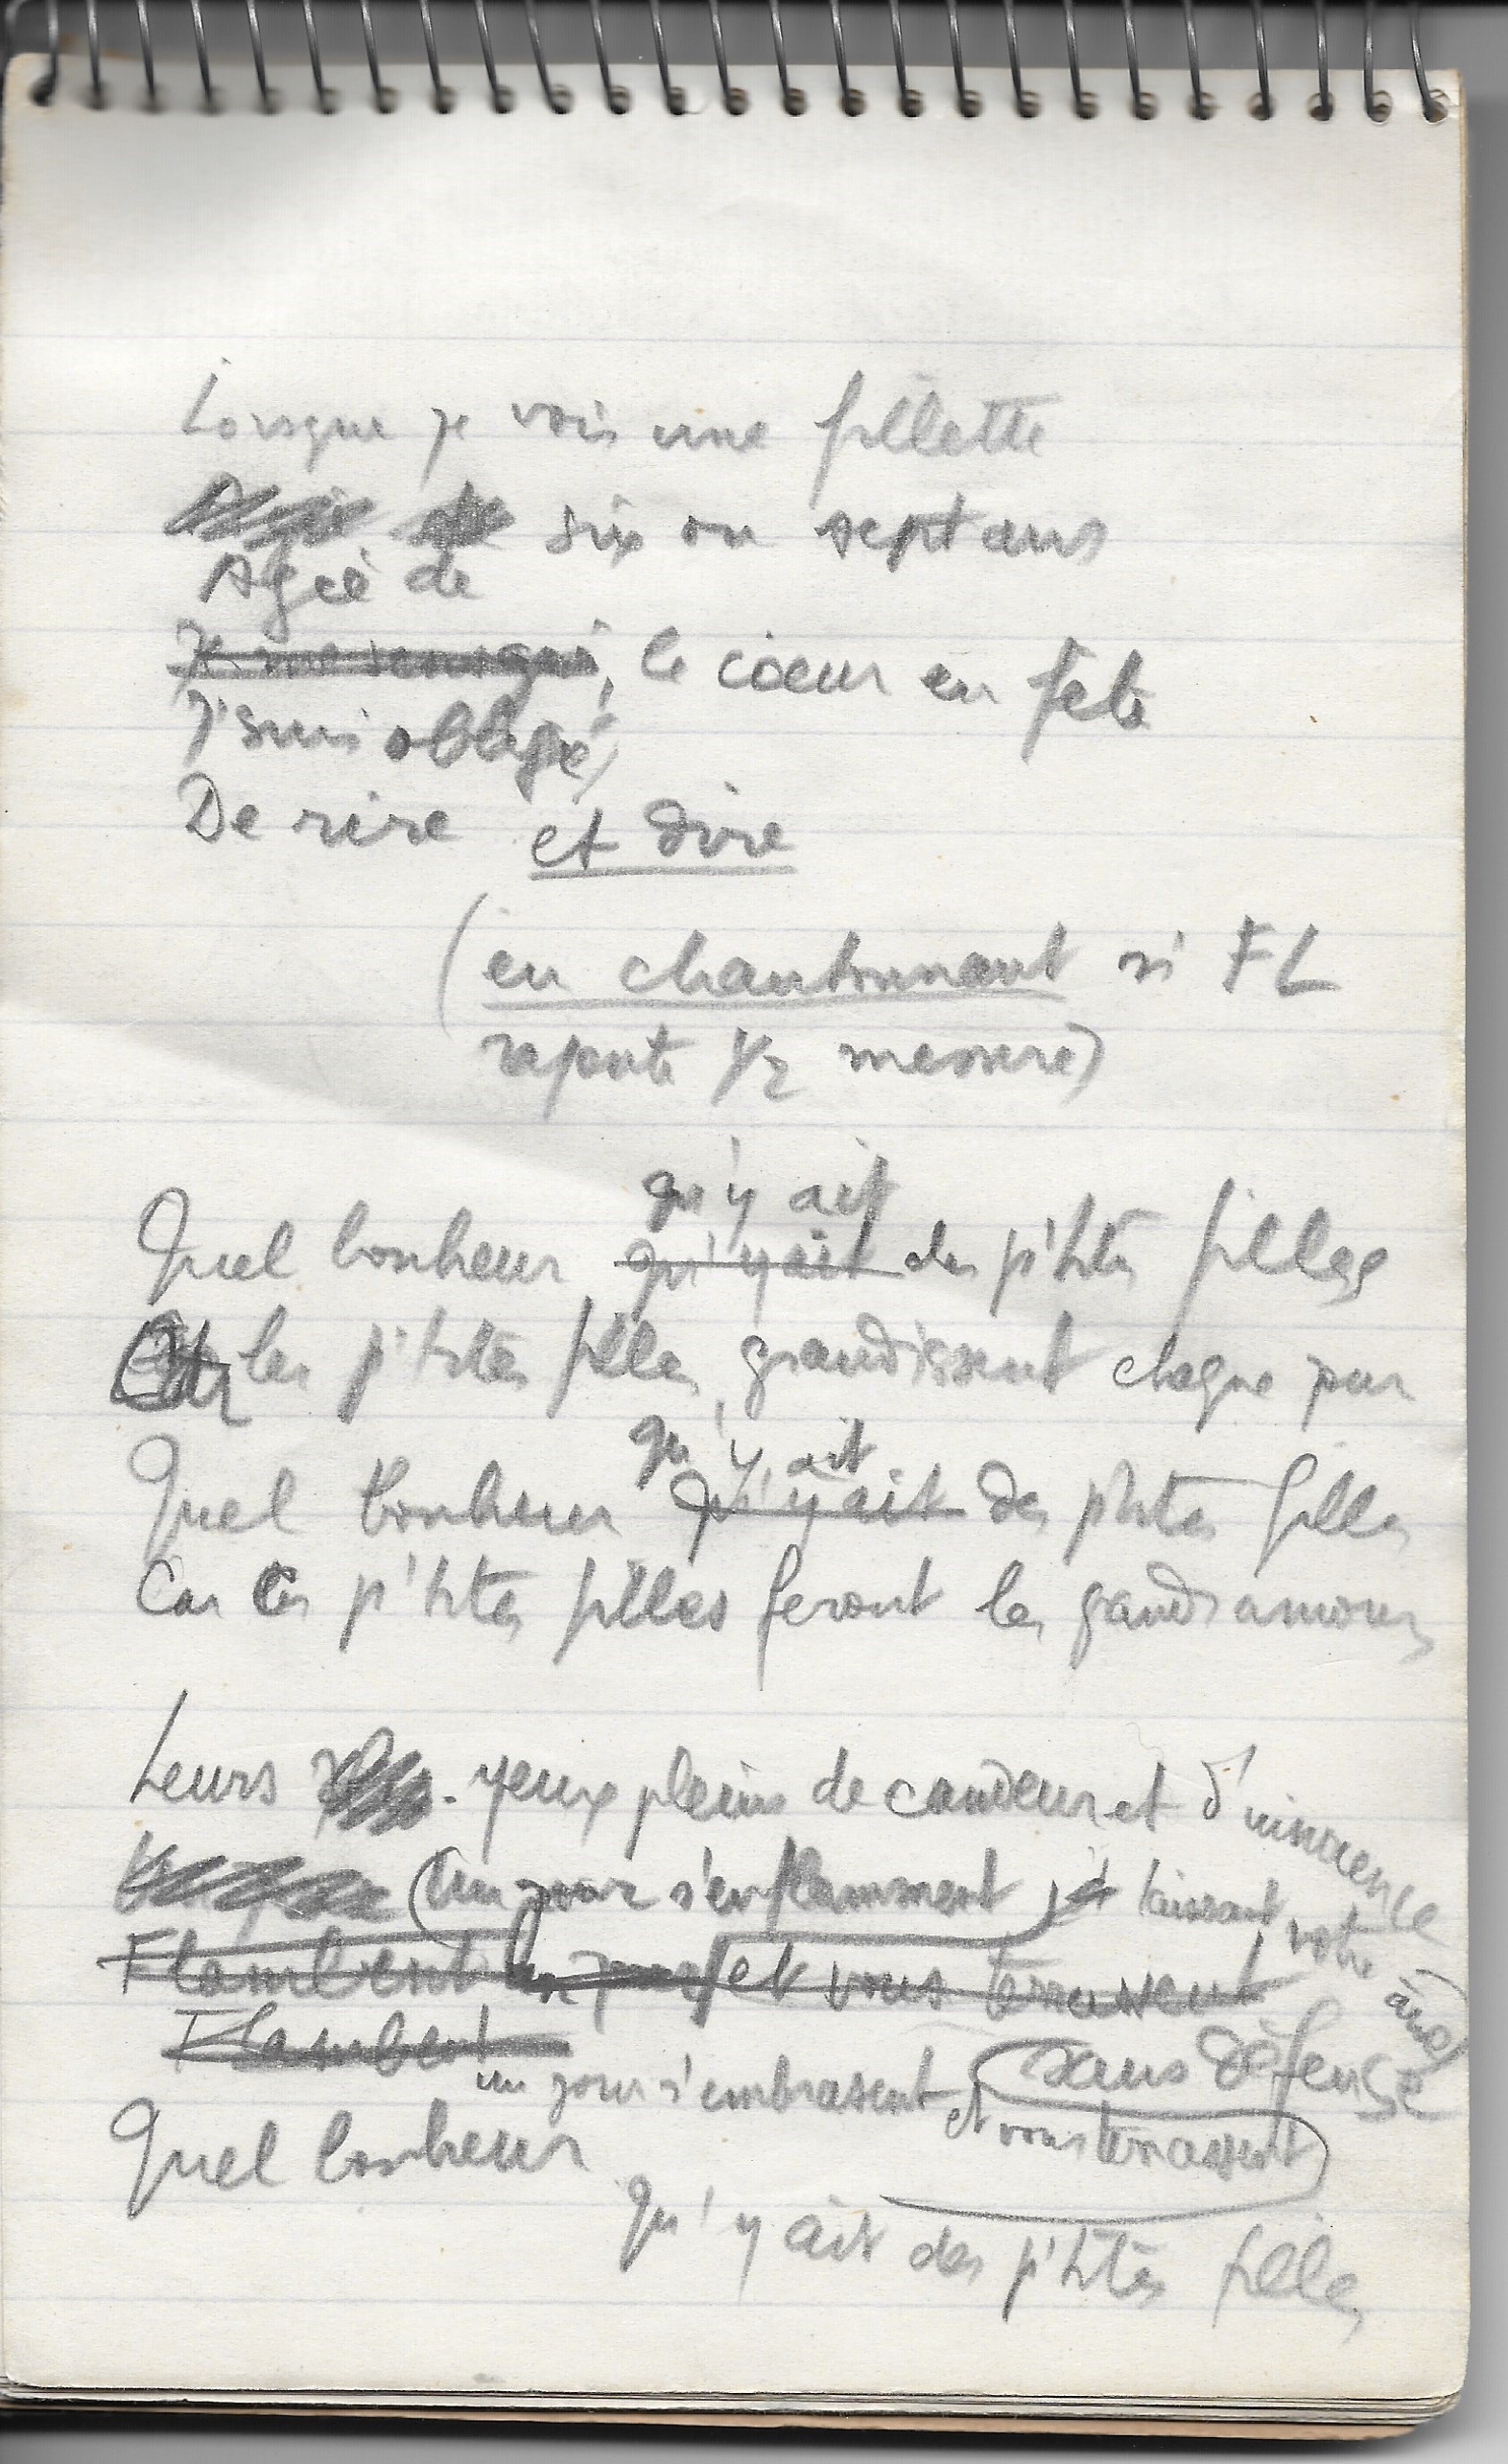 Lorsque je vois une fillette
six ou sept ans
Agée de
Je me sens gai, le coeur en fête
J'suis obligé,
De rire et dire
(en chantonnant si FL
rajoute 1/2 mesure)
qu'y ait
Quel bonheur qu'y ait des p'tites filles
les p'tites filles grandissent chaque jour
qu'y ait
Quel bonheur qu'y ait des p'tites filles
Car les p'tites filles feront les grands amours
Leurs yeux pleins de candeur et d'innocence
(Un jour s'enflamment) et laissant votre âme
Flambent un jour et vous terrassent
Flambent sans défense
un jour s'embrasent et vous terrassent
Quel bonheur
qu'y ait des p'tites filles